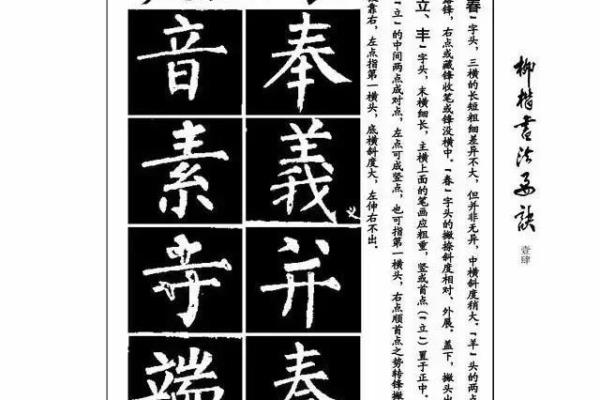 柳楷書法要訣
壹肆
春"字头，三横的长短粗细差异不大，但并非无异，中横斜度稍大。"羊"头的两点
落锋，右点或藏锋收笔或锋没横中。"春"字头的撇捺斜度相对、外展。盖下，撇头出
立、丰"字头，末横细长，主横上面的笔画应粗重，竖或首点（"立"）置于正中。
"立"的中间两点成对点，左点可成竖点，也可指第一横头，右点顺首点之势转锋撇
靠右，左点指第一横头，底横斜度大，左伸右不出。
奉
義
义
并
音
素
寺
端